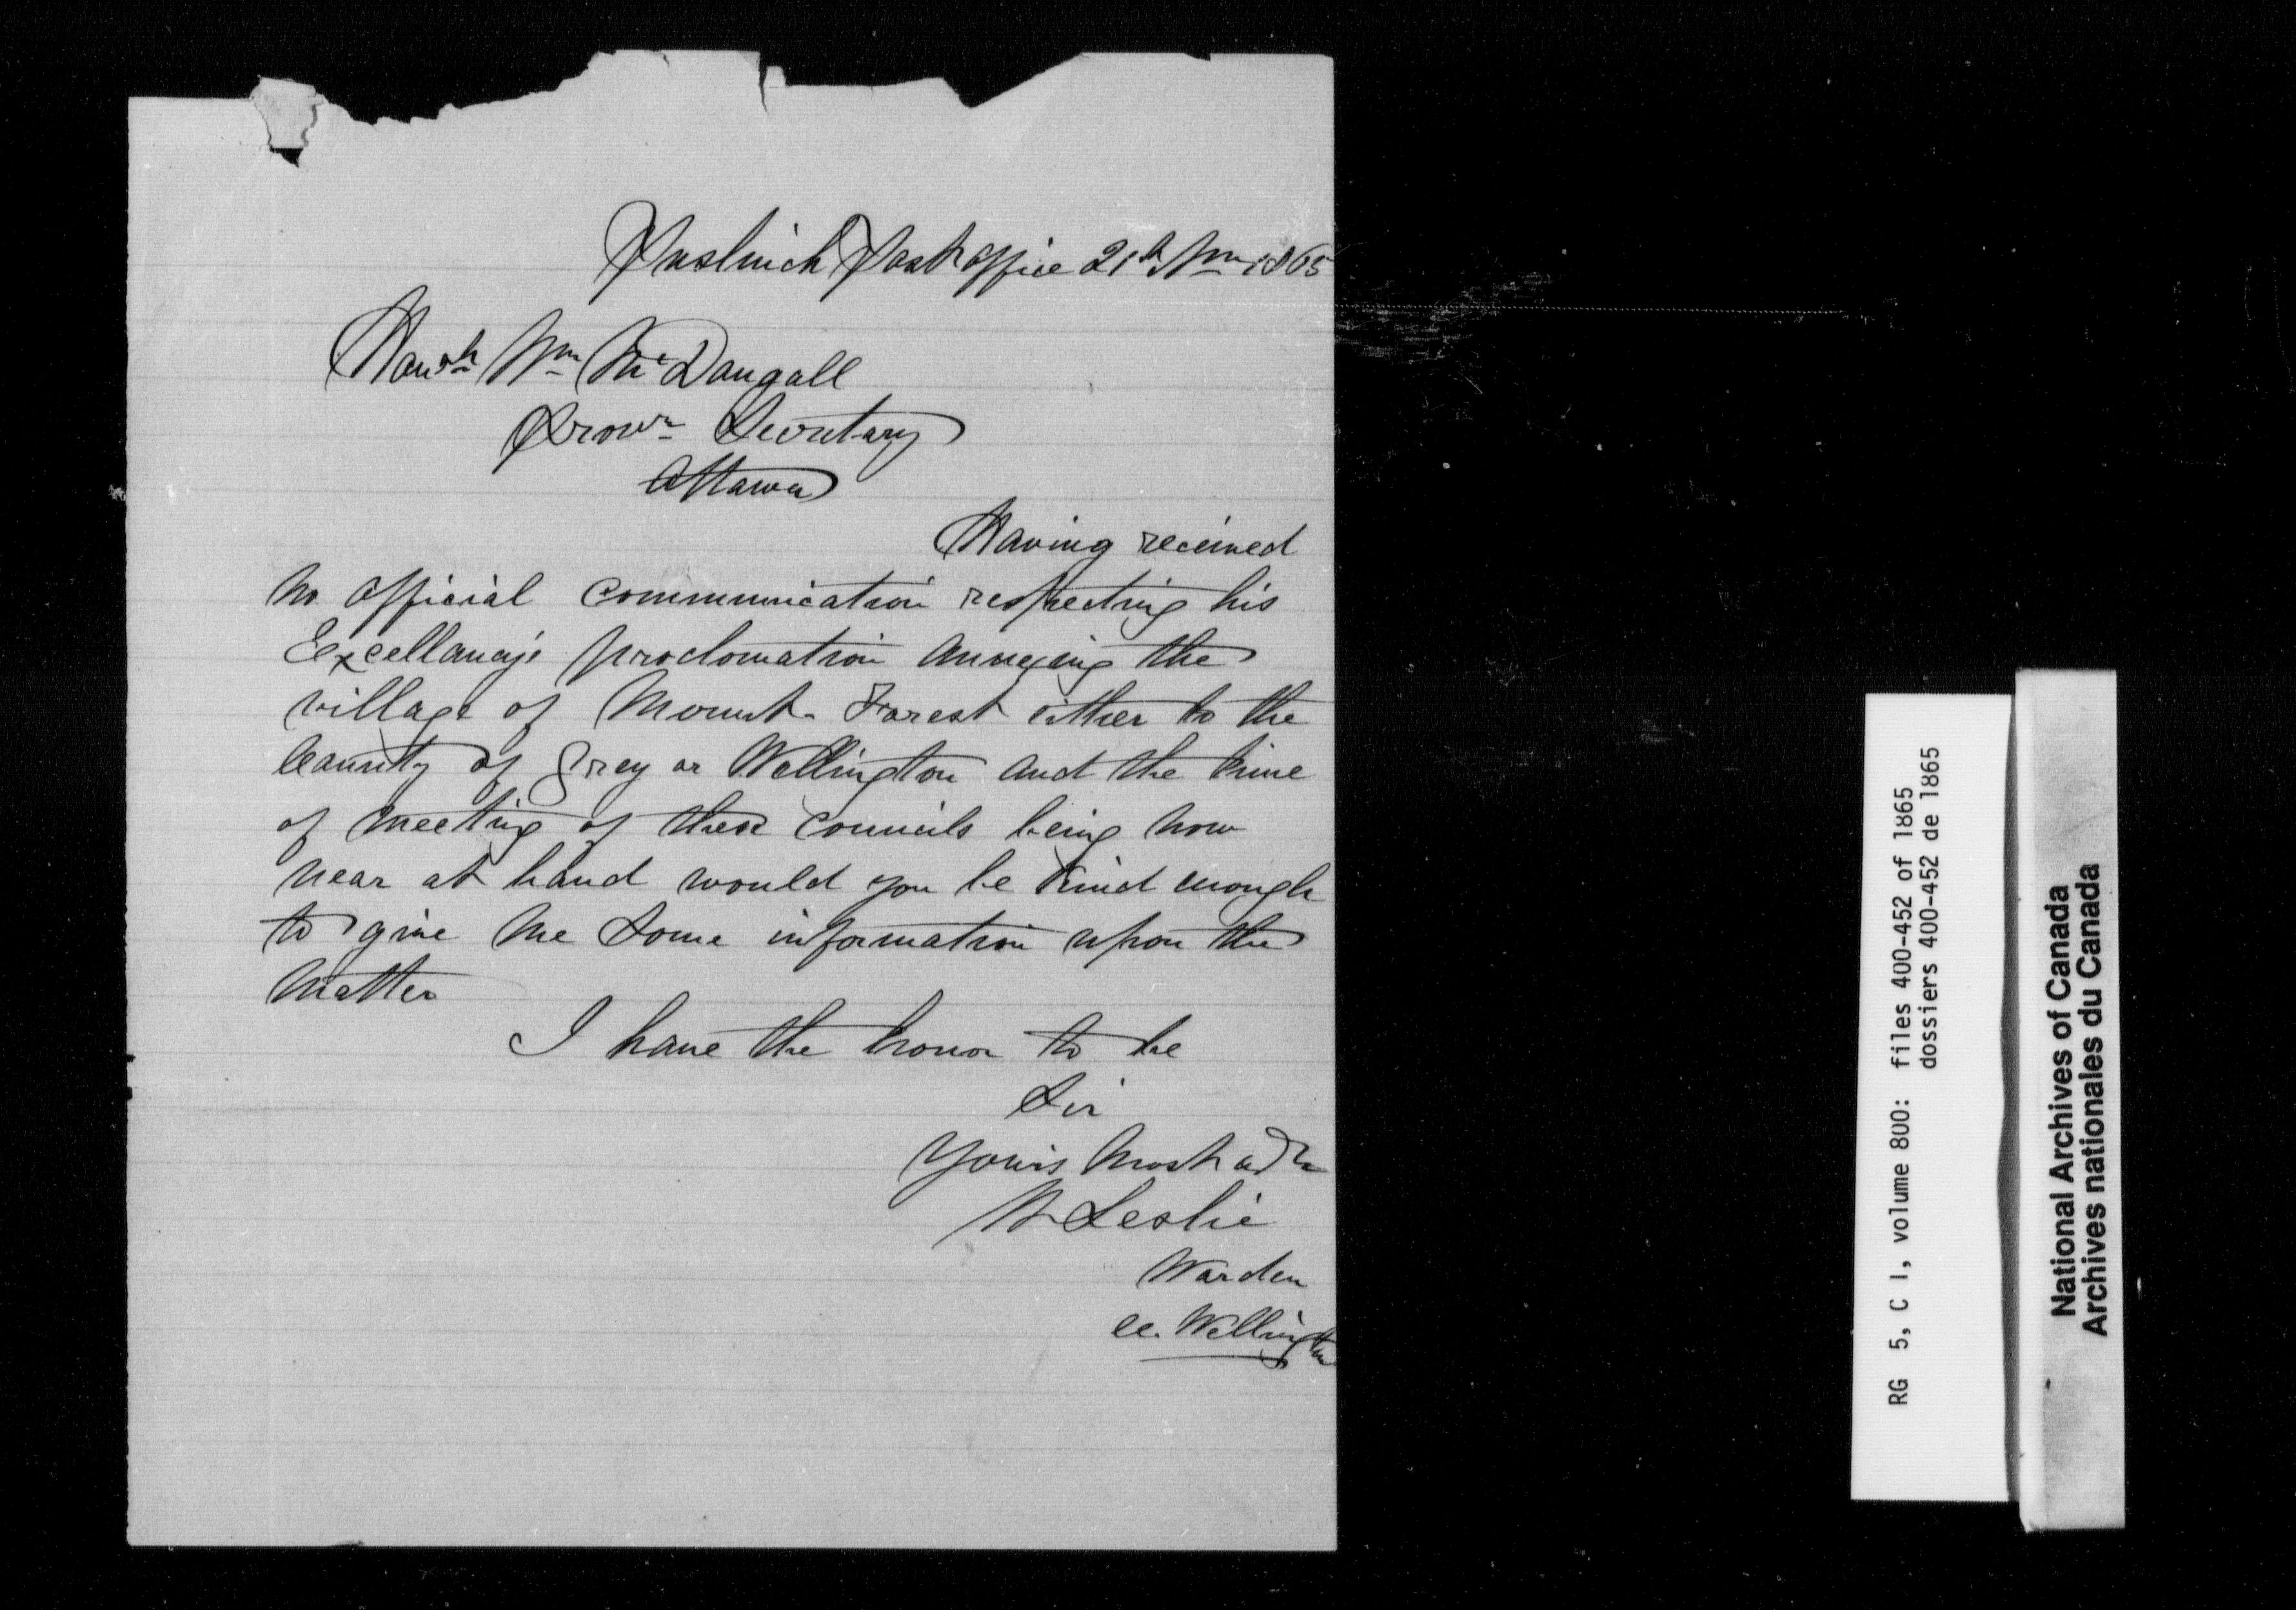 Puslinch Post office 21st 1865
Honble Wm McDougall
Provn Secretary
Ottawa
Having received
no official communication respecting his
Excellancys proclomation annexing the
village of Mount Forest either to the
County of Grey or Wellington and the time
of meeting of these councils being now
near at hand would you be kind enough
to give me some information upon the
matter
I have the honor to be
Sir
Yours most
W Leslie
Warden
Co. Wellington
RG 5, C 1, volume 800: files 400-452 of 1865
dossiers 400-452 de 1865
National Archives of Canada
Archives nationales du Canada